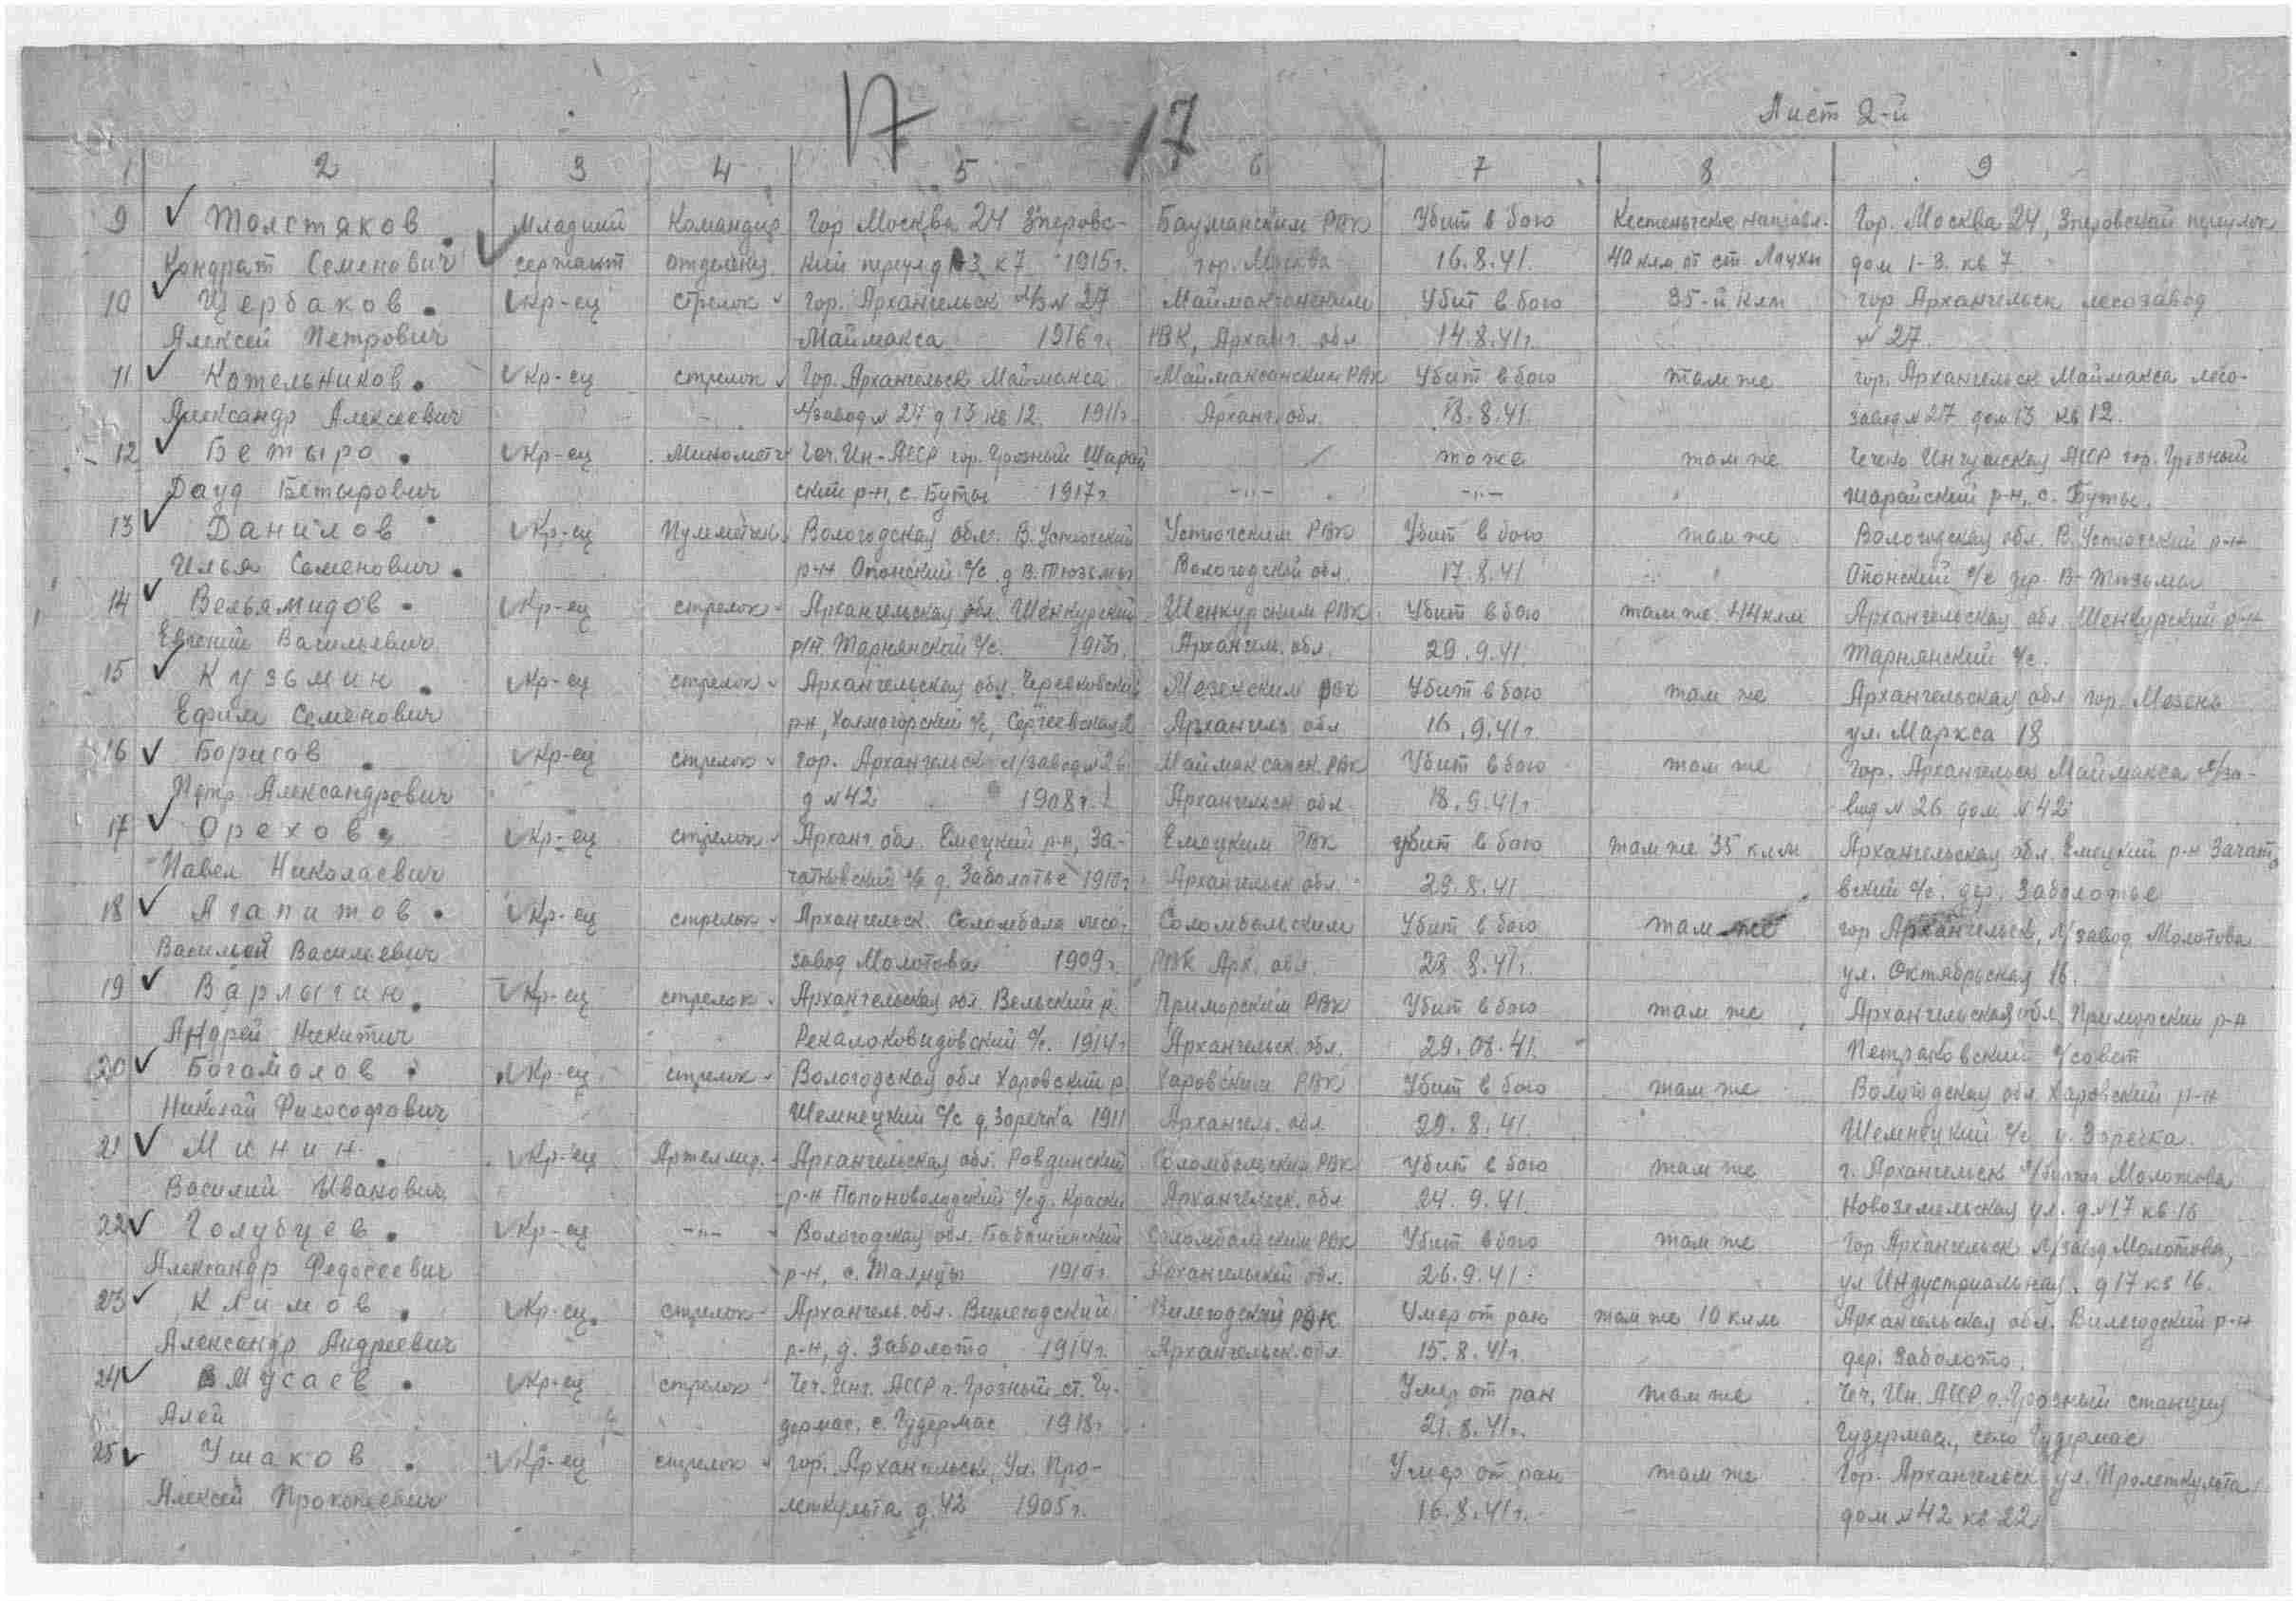 17 17
Лист 2-й
1 2 3 4 5 6 7 8 9
9 Толстяков Младший Командир Гор Москва 24 Бауманским РВК Убит в бою Кестеньгское направл. Гор. Москва 24,
Кондрат Семенович сержант отделения 1915г. гор. Москва 16.8.41. 40 клм от ст Лоухи дом 1-3. кв 7
10 Щербаков Кр-ец стрелок гор. Архангельск л/з № 27 Убит в бою 35-й клм гор Архангельск лесозавод
Алексей Петрович Маймакса 1916г. РВК, Арханг. обл 14.8.41г. № 27.
11 Котельников Кр-ец стрелок Гор. Архангельск Маймакса Маймаксанским РВК Убит в бою там же гор. Архангельск Маймакса лесо-
Александр Алексеевич л/завод № 27 д 13 кв 12. 1911г. Арханг. обл. 8.41. завод № 27 дом 13 кв 12.
12 Бетыро Кр-ец Минометч Чеч. Ин-АССР гор. Грозный Шарой тоже там же Чечено Ингушская АССР гор. Грозный
Дауд Бетырович ский р-н, с. Буты 1917г. -"- -"- шаройский р-н, с. Буты.
13 Данилов Кр-ец Пулеметчик Вологодская обл. В. Устюгский Устюгским РВК Убит в бою там же Вологодская обл. В. Устюгский р-н
Илья Семенович р-н Опокский с/с д В. Вологодской обл. 17.8.41 Опокский с/с дер. В-
14 Вельямидов Кр-ец стрелок Архангельская обл. Шенкурский Шенкурским РВК Убит в бою там же 44 клм Архангельская обл Шенкурский р-н
Евгений Васильевич р/н. Тарнянский с/с. Архангель. обл. 29.9.41. Тарнянский с/с.
15 Кузьмин Кр-ец стрелок Архангельская обл. Черевковский Мезенским РВК Убит в бою там же Архангельская обл гор. Мезень
Ефим Семенович р-н, Холмогорский с/с, Сергеевская Архангель обл 16.9.41г. ул. Маркса 18
16 Борисов Кр-ец стрелок гор. Архангельск л/завод № 26 Маймаксанск. РВК Убит в бою там же Гор. Архангельск Маймакса л/за-
Петр Александрович д № 42 1908г. Архангельск обл 18.9.41г. вод № 26 дом № 42
17 Орехов Кр-ец стрелок Арханг. обл. Емецкий р-н, За- Емецким РВК убит в бою там же 35 клм Архангельская обл. Емецкий р-н
Павел Николаевич с/с д. Заболотье Архангельск обл. 29.8.41 вский с/с. дер. Заболотье
18 Агапитов Кр-ец стрелок Архангельск. Соломбала лесо- Соломбальским Убит в бою там же гор Архангельск, л/завод Молотова
Василий Васильевич завод Молотова 1909г. РВК Арх. обл. 28 8.41г. ул. Октябрьская 16.
19 Кр-ец стрелок Архангельская обл. Вельский р. Приморским РВК Убит в бою там же Архангельская обл. Приморский р-н
Андрей Никитич с/с. 1914г Архангельск. обл. 29.08.41. с/совет
20 Богомолов Кр-ец стрелок Вологодская обл Харовский р Харовским РВК Убит в бою там же Вологодская обл. Харовский р-н
Николай Философович Шемнецкий с/с д. Заречка 1911 Архангель. обл. 29.8.41. Шемнецкий с/с д. Заречка.
21 Минин Кр-ец Артеллир. Архангельская обл. Ровдинский Соломбальский РВК Убит в бою там же г. Архангельск Молотова
Василий Иванович р-н с/с д. Архангельск. обл 24.9.41. Новоземельская ул. д № 17 кв 16
22 Голубцев Кр-ец -"- Вологодская обл. Бабушкинский Соломбальским РВК Убит в бою там же Гор Архангельск л/завод Молотова,
Александр Федосеевич р-н, с. Архангельской обл. 26.9.41. ул Индустриальная. д 17 кв 16.
23 Климов Кр-ец стрелок Архангель. обл. Вилегодский Вилегодский РВК Умер от ран там же 10 клм Архангельская обл. Вилегодский р-н
Александр Андреевич р-н, д. Заболото 1914г. Архангельск. обл 15.8.41г. дер. Заболото.
24 Мусаев Кр-ец стрелок Чеч. Инг. АССР г. Грозный ст. Гу- Умер от ран там же Чеч. Ин. АССР г. Грозный станция
Алей дермас. с. Гудермас 1918г. 21.8.41г. Гудермас, село Гудермас
25 Ушаков Кр-ец стрелок гор. Архангельск, Ул. Про- Умер от ран там же Гор. Архангельск ул. Пролеткульта
Алексей Прокопьевич леткульта д. 42 1905г. 16.8.41г. дом № 42 кв 22